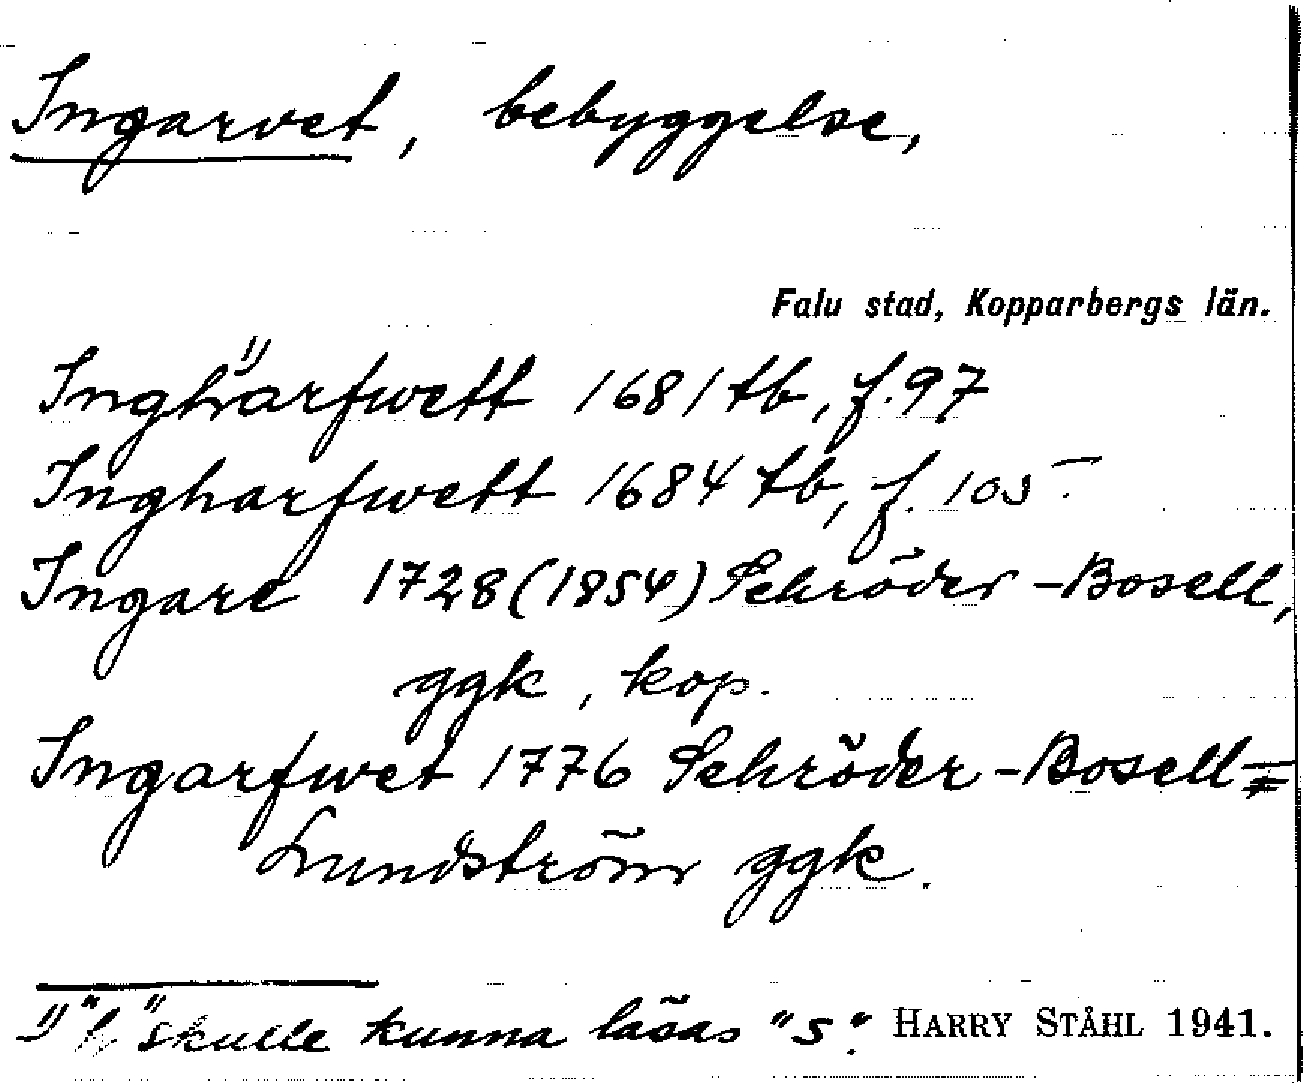 Ingarvet, bebyggelse,
Falu stad, Kopparbergs län.
Ingh¹⁾arfwett 1681 tb, f. 97
Ingharfwett 1684 tb, f. 105
Ingare 1728 (1854) Schröder-Bosell,
ggk, kop.
Ingarfwet 1776 Schröder-Bosell=
Lundström ggk.
¹⁾ "h" skulle kunna läsas "s". HARRY STÅHL 1941.